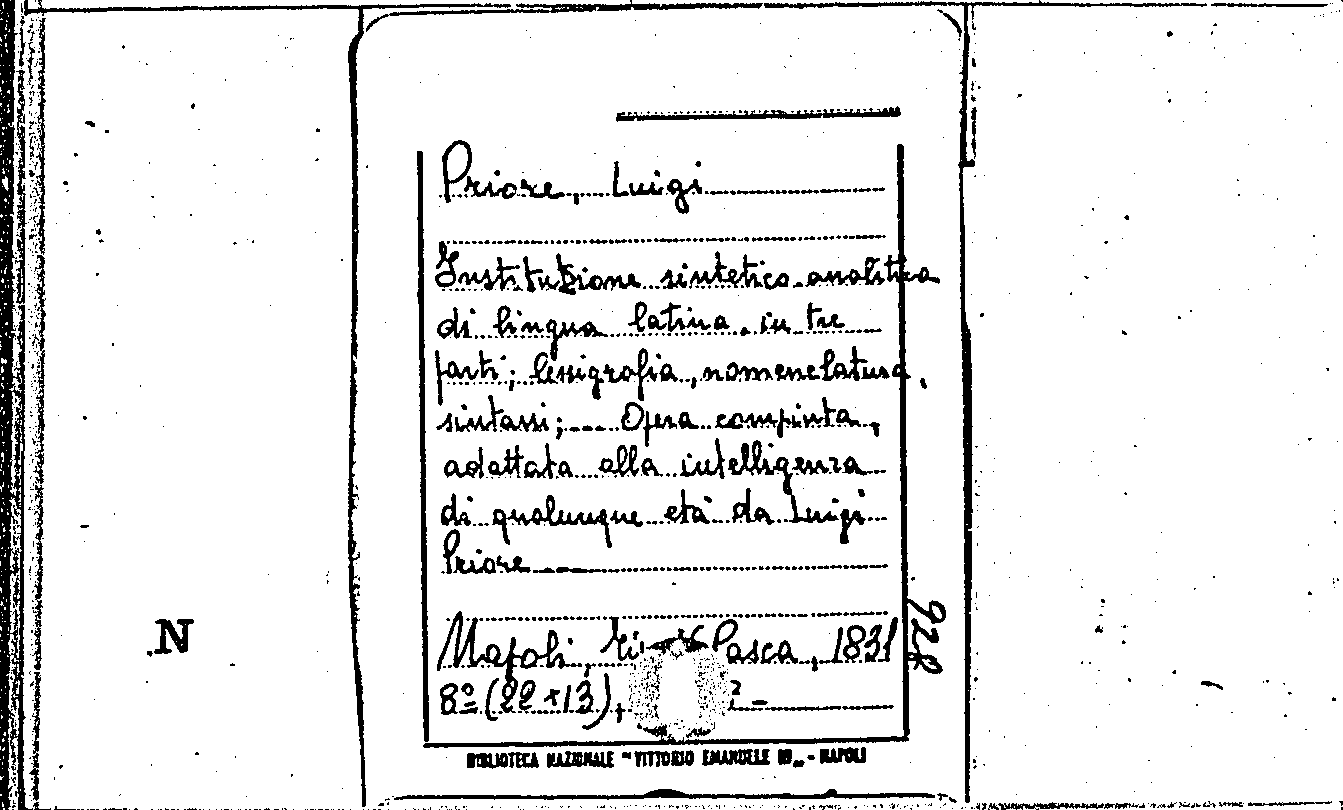 Priore, Luigi
Instituzione sintetico-analitica
di lingua latina, in tre
parti; lessigrafia, nomenclatura,
sintassi; --- Opera compiuta,
adattata alla intelligenza
di qualunque età da Luigi
Priore ---
Napoli, Pasca, 1831
8º (22 x 13),
N
BIBLIOTECA NAZIONALE "VITTORIO EMANUELE III" - NAPOLI